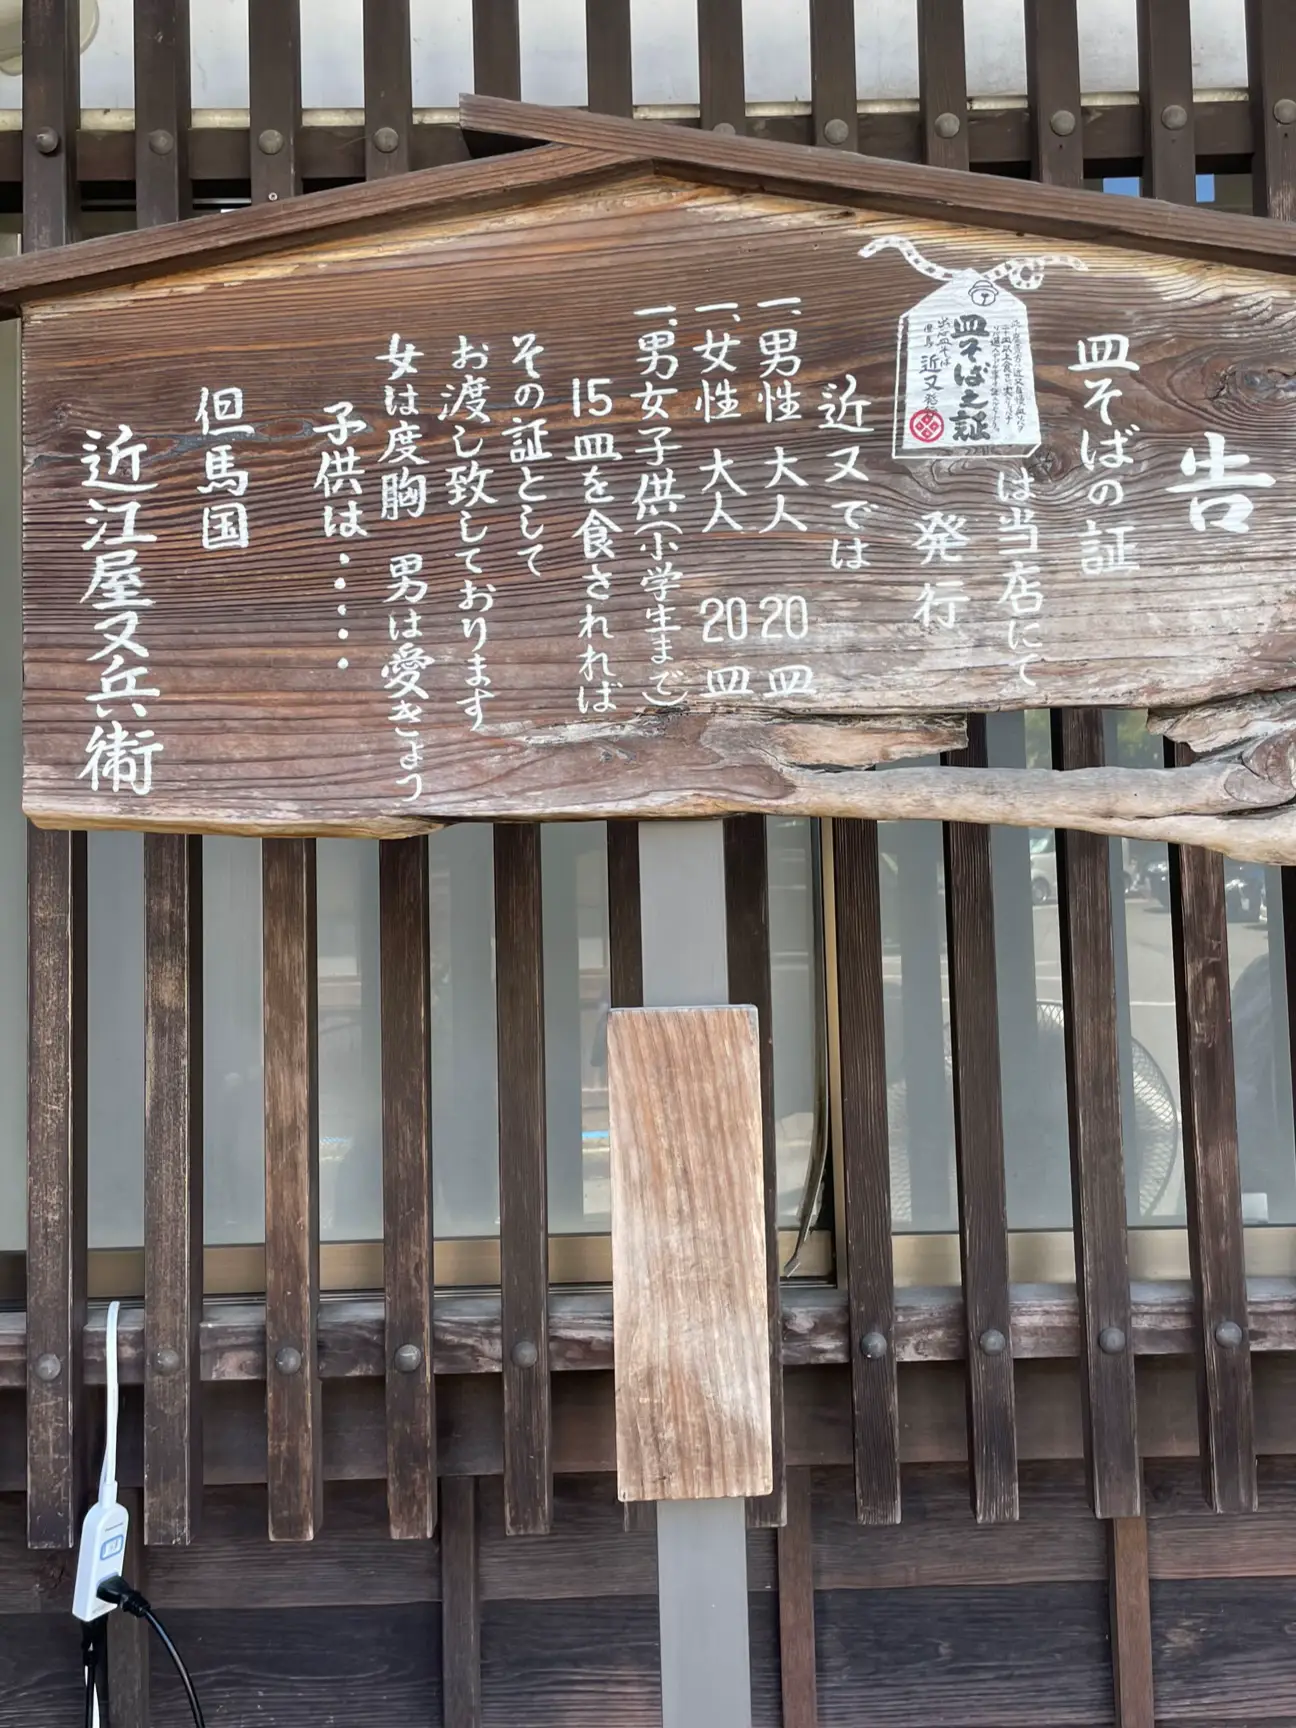 告
皿そばの証
は当店にて
発行
皿そば之証
近又
近又では
一、男性 大人 20皿
一、女性 大人 20皿
一、男女子供(小学生まで)
15皿を食されれば
その証として
お渡し致しております
女は度胸 男は愛きょう
子供は・・・・
但馬国
近江屋又兵衛